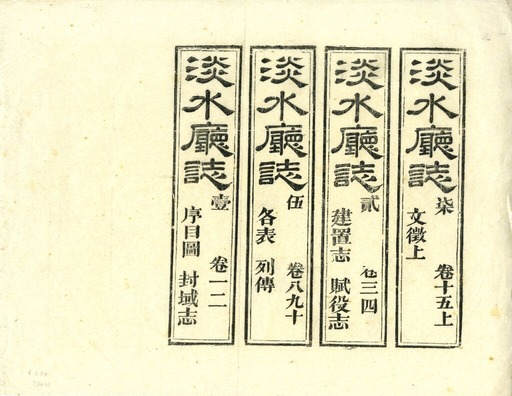 淡水廳誌 柒 卷十五上
文徵上
淡水廳誌 貳 卷三四
建置志 賦役志
淡水廳誌 伍 卷八九十
各表 列傳
淡水廳誌 壹 卷一二
序目圖 封域志